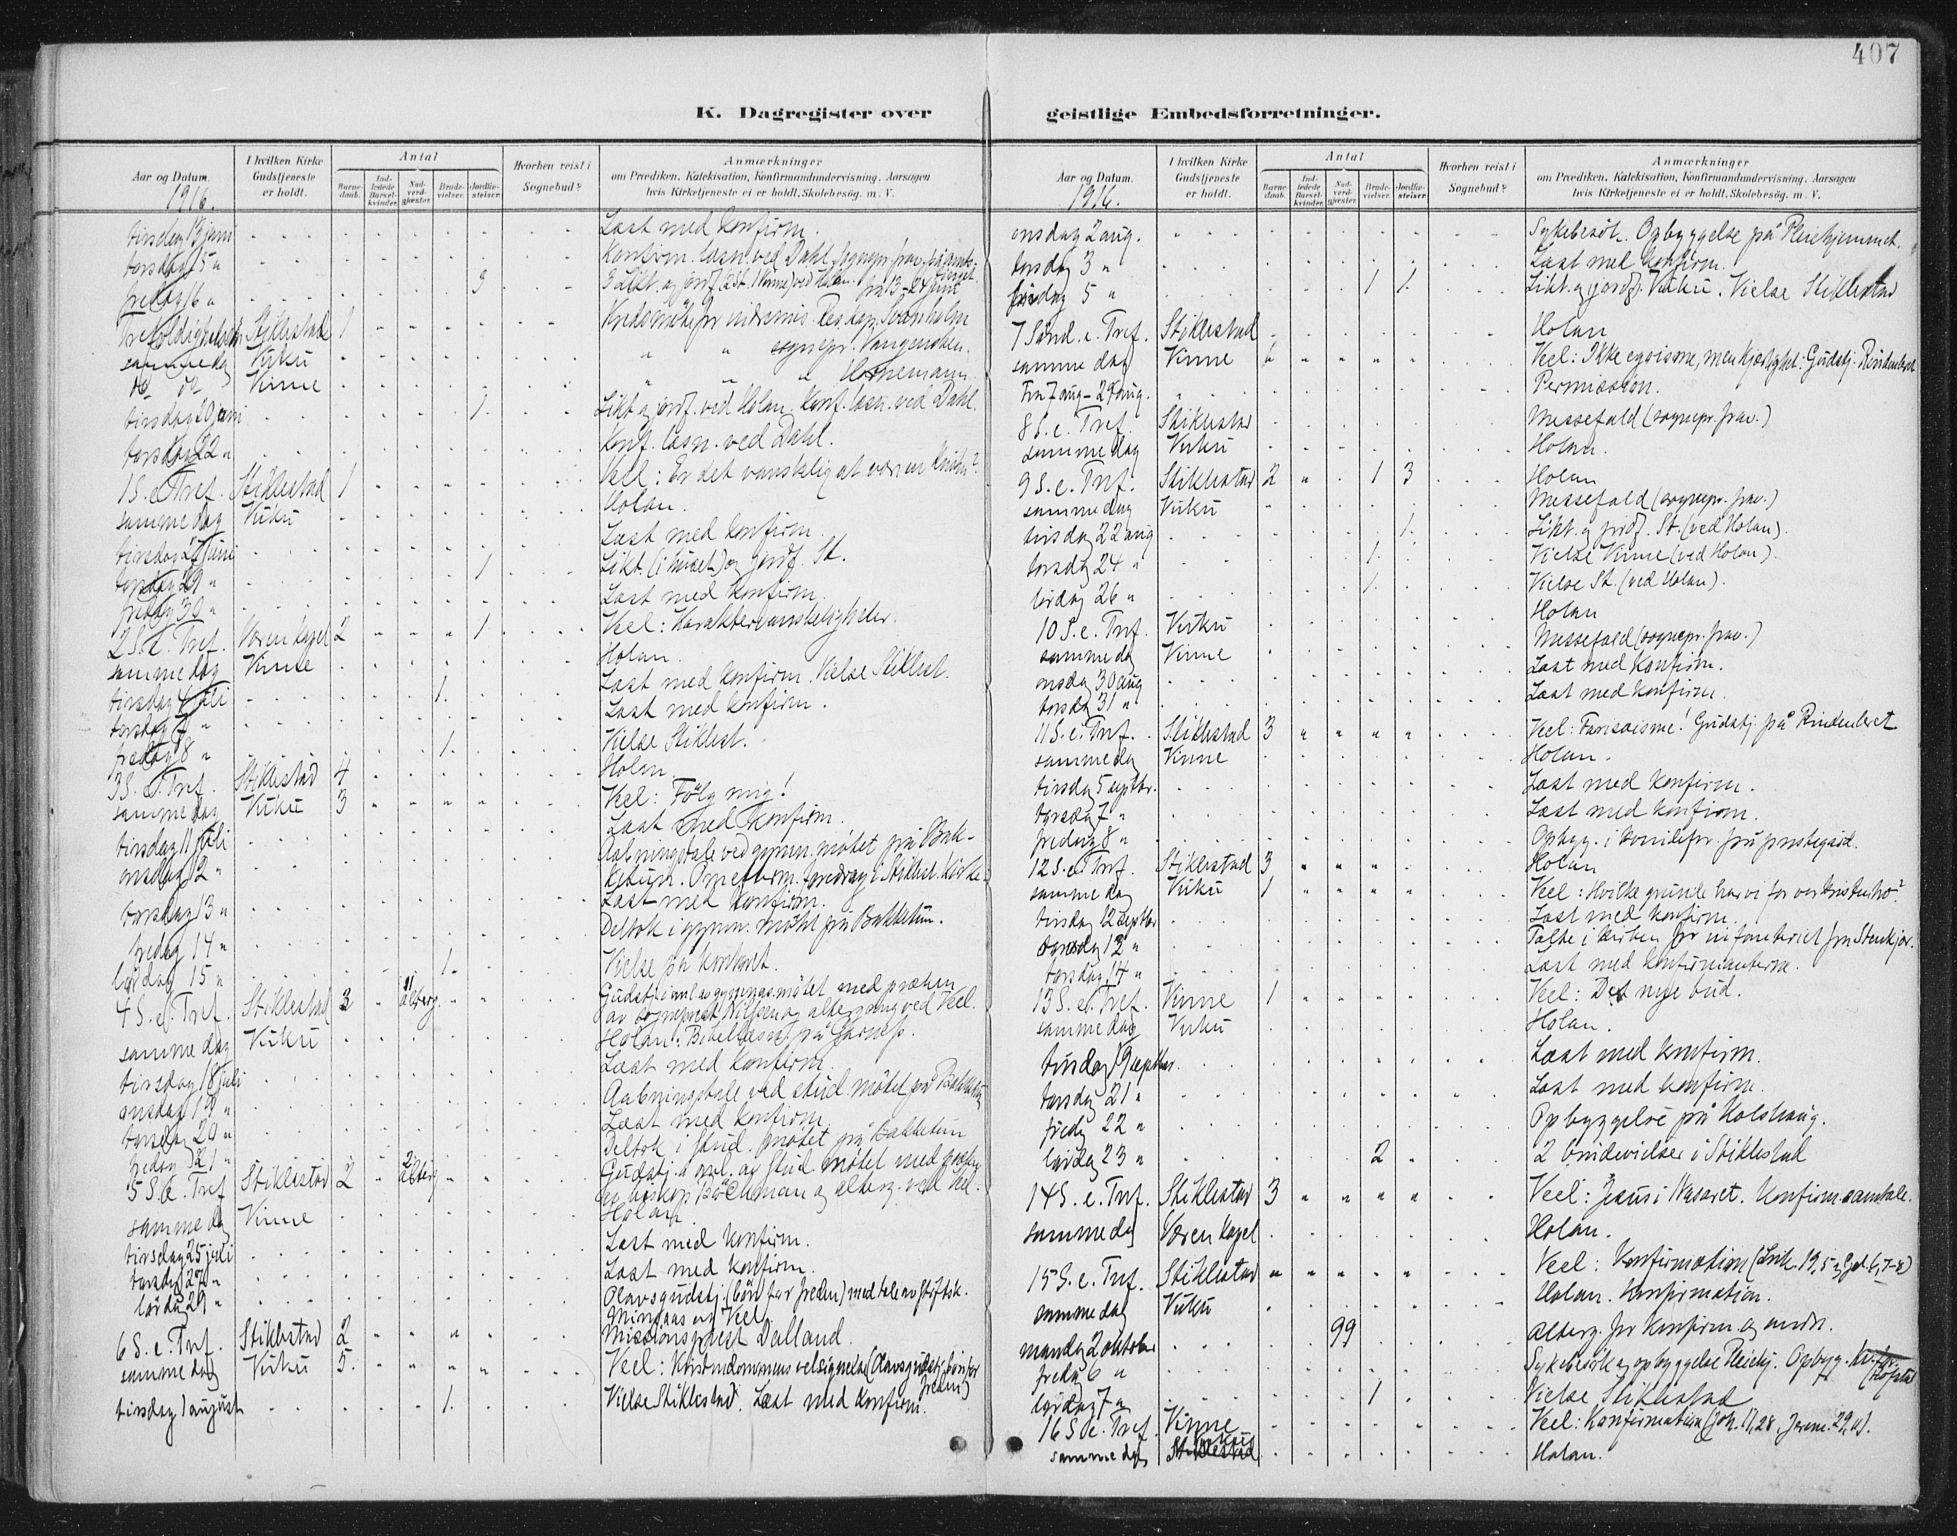 407
K. Dagregister over geistlige Embedsforretninger.
Aar og Datum. 1916.
I hvilken Kirke Gudstjeneste er holdt.
Antal
Barnedaab.
Indledede Barselkvinder.
Nadverdgjæster.
Brudevielser.
Jordfæstelser.
Hvorhen reist i Sognebud?
Anmærkninger
om Prædiken, Katekisation, Konfirmandundervisning, Aarsagen
hvis Kirketjeneste ei er holdt, Skolebesög. m. V.
tirsdag 13 juni Læst med konfirm.
torsdag 15 " Konfirm. læsn. ved Dahl.
fredag 16 " 3 Likt. og jordf. (2 St. 1 Vinne) ved Holan.
Trefoldighets Stiklestad 1
samme dag Vuku " " sognepr.
do do Vinne " " "
tirsdag 20 juni 1. Likt. og jordf. ved Holan. Konf. læsn. ved Dahl.
torsdag 22 " Konf. læsn. ved Dahl.
1 S. e. Tref. Stiklestad 1 " " " " Veel: Er det vanskelig at være en kristen?
samme dag Vuku Holan.
tirsdag 27 juni Læst med konfirm.
torsdag 29 " 1 Likt. (i huset) og jordf. St.
fredag 30 " Læst med konfirm.
2 S. e. Tref. Værenkapel 2 " " " 1 Veel: Karaktervanskeligheder.
samme dag Vinne Holan.
tirsdag 4 juli 1. Læst med konfirm. Vielse Stiklest.
torsdag 7 " Læst med konfirm.
fredag 8 " 1. Vielse Stiklest.
3 S. e. Tref. Stiklestad 4 Holan.
samme dag Vuku 3 " " " " Veel: Følg mig!
tirsdag 11 juli Læst med konfirm.
onsdag 12 " Aabningstale ved gymn. møtet på Bakketun.
torsdag 13 " Læst med konfirm.
fredag 14 " Deltok i gymn. møtet på Bakketun.
lørdag 15 " 1. Vielse på kontoret.
4 S. e. Tref. Stiklestad 3 " altberg. " " Gudstj. i anl. av gymnas. møtet med præken
av sogneprest Nilssen og altergang ved Veel.
samme dag Vuku Holan. Bibellæsn. på
tirsdag 18 juli Læst med konfirm.
onsdag 19 " Aabningstale ved stud. møtet på Bakketun
torsdag 20 " Læst med konfirm.
fredag 21 " Deltok i stud. møtet på Bakketun
5 S. e. Tref. Stiklestad 2 " " " Gudstj. i anl. av stud. møtet med præken
av biskop Bøckman og alterg. ved Veel.
samme dag Vinne Holan.
tirsdag 25 juli Læst med konfirm.
torsdag 27 " Læst med konfirm.
lørdag 29 " Olavsgudstj. (bøn for freden) med tale av stiftsk.
og Veel.
6 S. e. Tref. Stiklestad 2 " " " " Missionsprest Dalland.
samme dag Vuku 5. " " " " Veel: Kristendommens velsignelse (Olavsgudstj. bøn for freden)
tirsdag 1 august 1. Vielse Stiklestad. Læst med konfirm.
Aar og Datum. 1916.
I hvilken Kirke Gudstjeneste er holdt.
Antal
Barnedaab.
Indledede Barselkvinder.
Nadverdgjæster.
Brudevielser.
Jordfæstelser.
Hvorhen reist i Sognebud?
Anmærkninger
om Prædiken, Katekisation, Konfirmandundervisning, Aarsagen
hvis Kirketjeneste ei er holdt, Skolebesög. m. V.
onsdag 2 aug. Sykebesøk. Opbyggelse på Pleiehjemmet.
torsdag 3 " Læst med konfirm.
5 " 1 1. Likt. og jordf. Vuku. Vielse Stiklestad
7 Sønd. e. Tref. Stiklestad Holan
samme dag Vinne " " " " Veel: Ikke egoisme, men kjærlighet: Gudstj. Rindenleret
Fra 7 aug – 27 aug. Permission.
8 S. e. Tref. Stiklestad Messefald (sognepr. frav.)
samme dag Vuku Holan.
9 S. e. Tref. Stiklestad 2 " 1 3 Holan
samme dag Vuku Messefald (sognepr. frav.)
tirsdag 22 aug 1. Likt. og jordf. St. (ved Holan).
torsdag 24 " 1. Vielse Vinne (ved Holan).
lørdag 26 " 1. Vielse St. (ved Holan).
10 S. e. Tref. Vuku Holan
samme dag Vinne Messefald (sognepr. frav.)
onsdag 30 aug Læst med konfirm.
torsdag 31 " Læst med konfirm.
11 S. e. Tref. Stiklestad 3 " " " " Veel: Farisæisme! Gudstj. på Rindenleret
samme dag Vinne Holan.
tirsdag 5 septbr. Læst med konfirm.
torsdag 7 " Læst med konfirm.
fredag 8 " Opbyg. i kvindefor. på prestegård.
12 S. e. Tref. Stiklestad 3 " " " Holan
samme dag Vuku 1 " " " " Veel: Hvilke grunde har vi for vor kristentro?
tirsdag 12 septbr Læst med konfirm.
onsdag 13 " Talte i kirken for infanteriet fra Stenkjær.
torsdag 14 " Læst med konfirmanterne.
13 S. e. Tref. Vinne 1 " " " " Veel: Det nye bud.
samme dag Vuku Holan.
tirsdag 19 septbr. Læst med konfirm.
torsdag 21 " Læst med konfirm.
fredag 22 " Opbyggelse på Holshaug.
lørdag 23 " 2 " 2 brudevielser i Stiklestad
14 S. e. Tref. Stiklestad 3 " " " " Veel: Jesus i Nasaret. Konfirm.samtale.
samme dag Værenkapel Holan.
15 S. e. Tref. Stiklestad " " " " " Veel: Konfirmation (Luk. 19,5 og Gal. 6,7-8)
samme dag Vuku Holan. Konfirmation.
mandag 2 oktober 99 Alterg. for konfirm. og andre.
fredag 6 " Sykebesøk og opbyggelse Pleiehj. Opbyg.
lørdag 7 " 1 Vielse Stiklestad
16 S. e. Tref. Vinne Veel: Konfirmation (Joh. 17,28, Jerem. 29,11).
samme dag Vuku Holan.